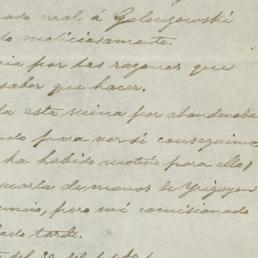 real á Galengowski
maliciosamente.
por las razones que
saber que hacer.
la esta mina por abandonada
para ver si conseguimos
ha habido motivo para ello,
de manos de Yrigoyen
pero mi comisionado
tarde.